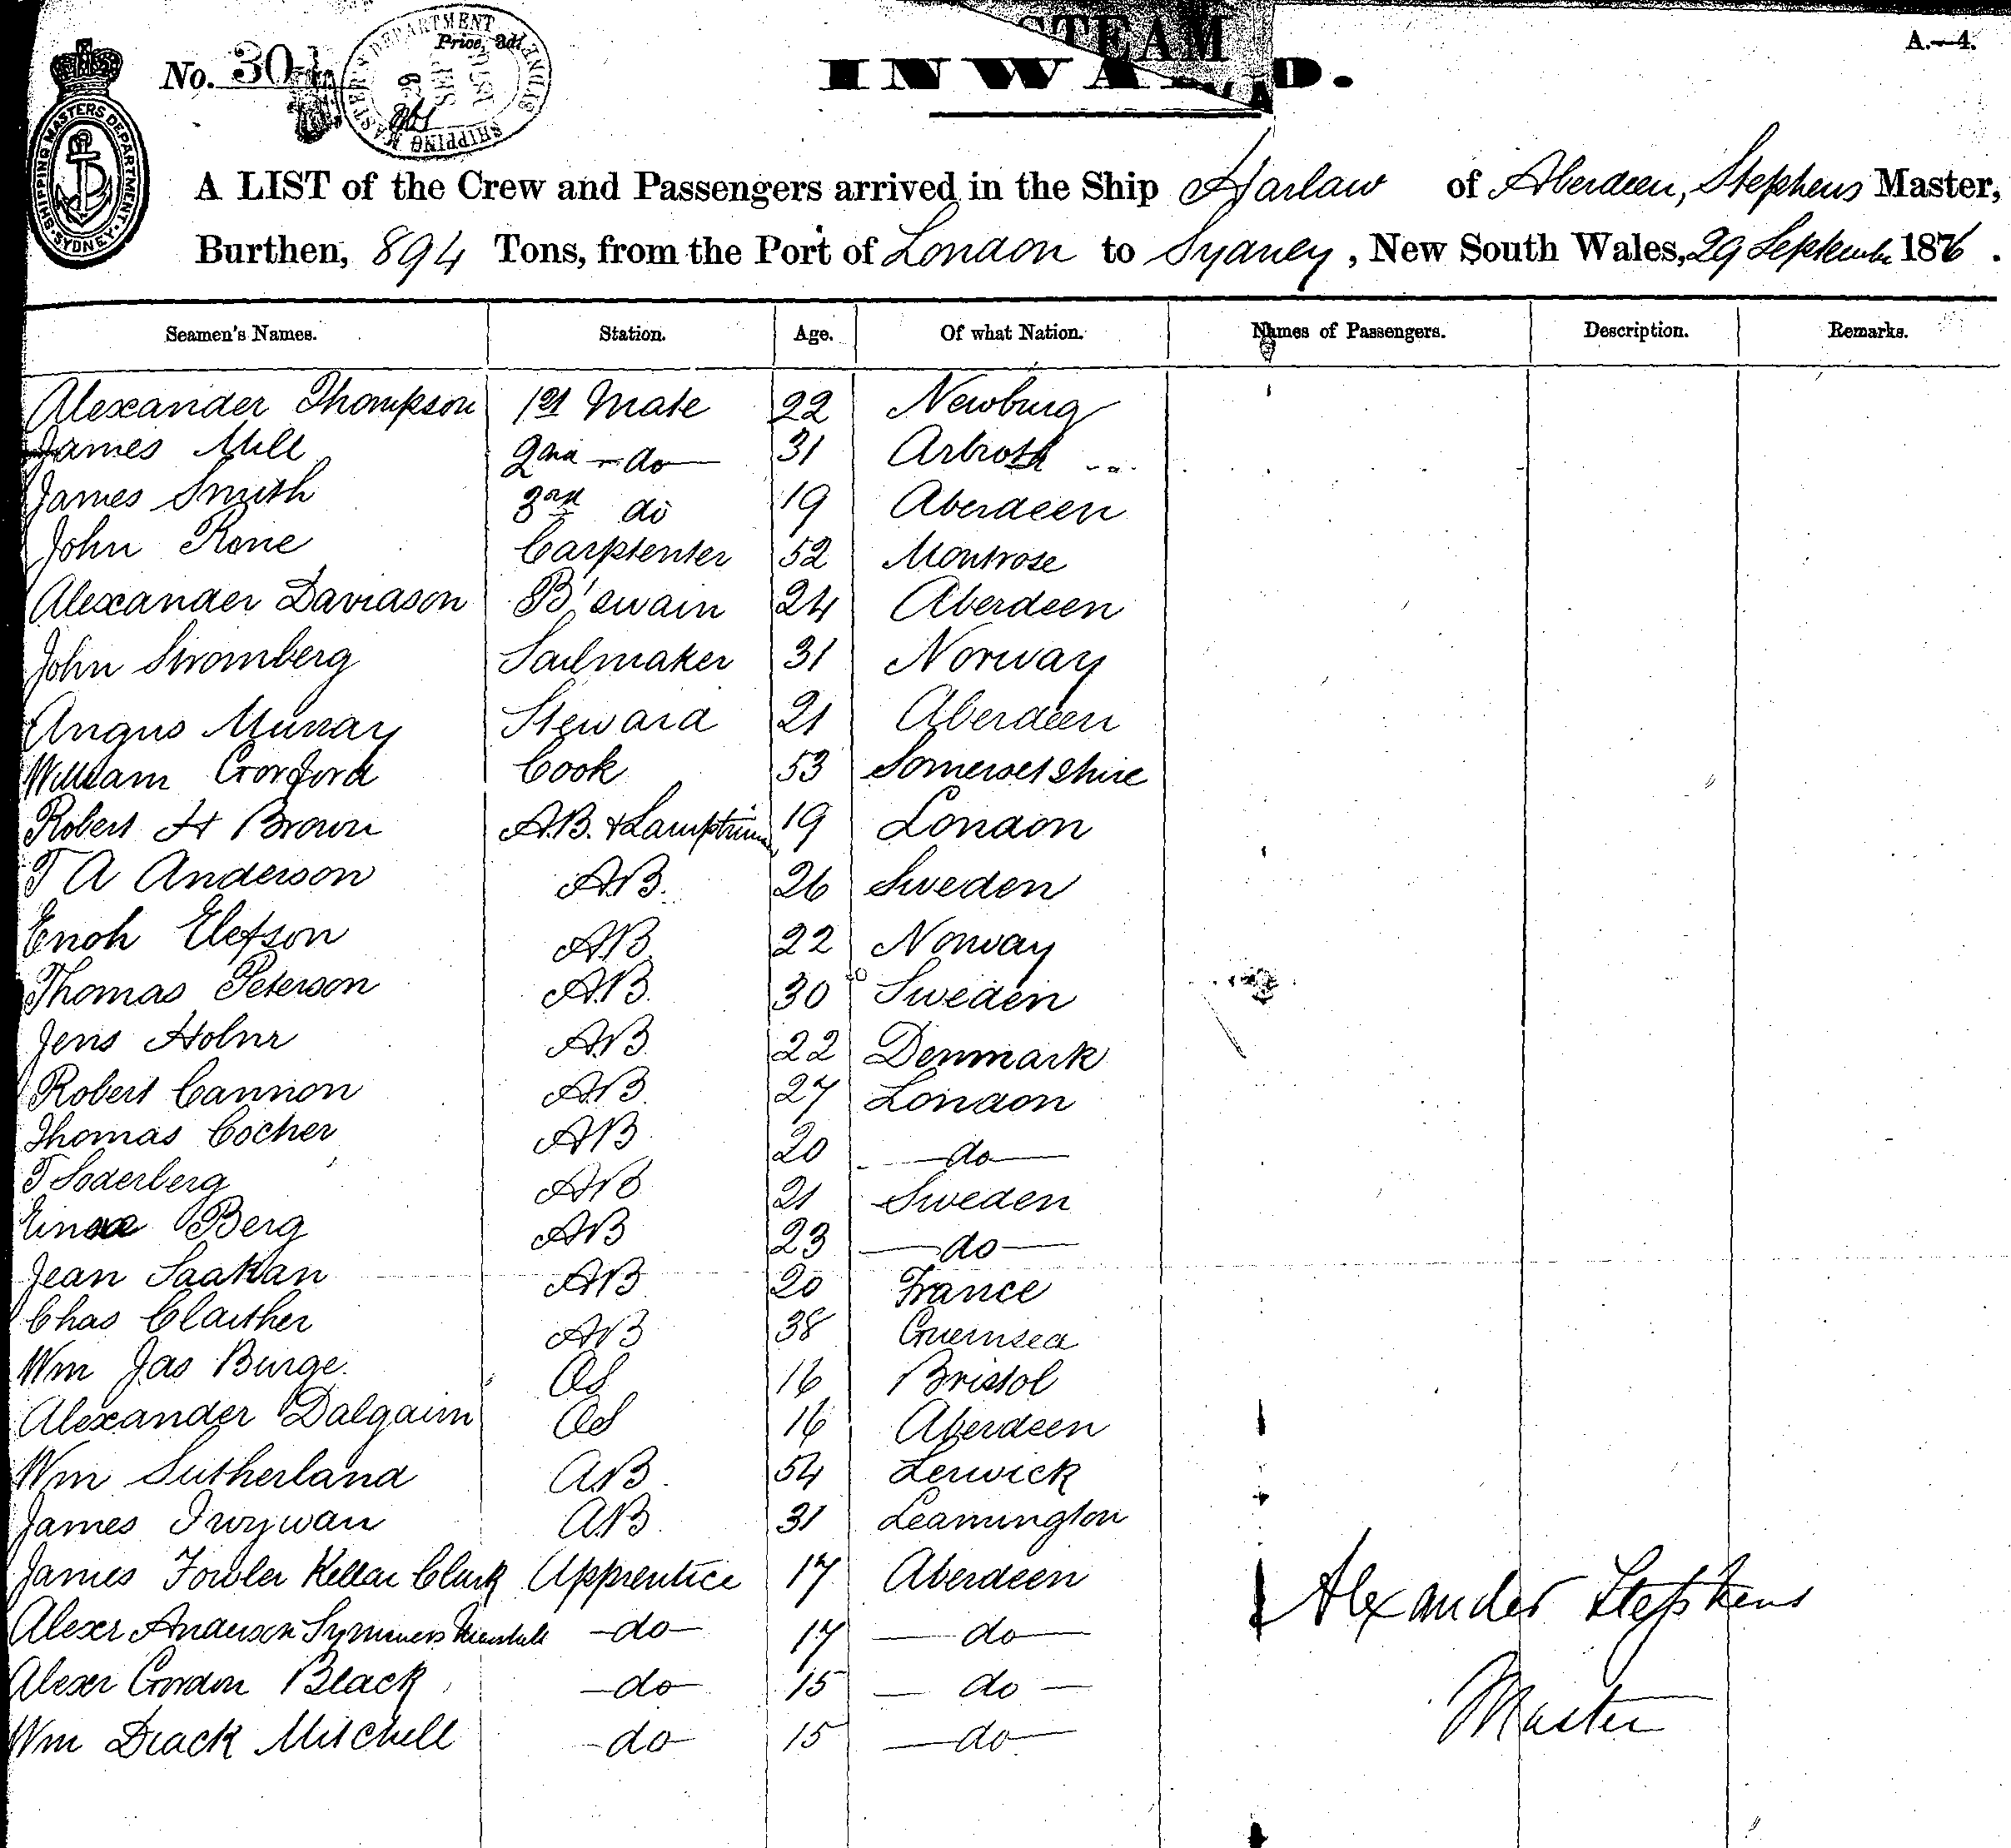 STEAM
A.—4.
No. 304
SHIPPING MASTERS DEPARTMENT SYDNEY
Price, 3d
INWARD.
SHIPPING MASTERS DEPARTMENT · SYDNEY ·
A LIST of the Crew and Passengers arrived in the Ship Harlaw of Aberdeen, Stephens Master,
Burthen, 894 Tons, from the Port of London to Sydney, New South Wales, 29 September 1876.
Seamen's Names. Station. Age. Of what Nation. Names of Passengers. Description. Remarks.
Alexander Thompson 1st Mate 22 Newburg
James Mill 2nd — do — 31 Arbroth
James Smith 3rd do 19 Aberdeen
John Rone Carptenter 52 Montrose
Alexander Davidson B'swain 24 Aberdeen
John Stromberg Sailmaker 31 Norway
Angus Murray Steward 21 Aberdeen
William Crorford Cook 53 Somersetshire
Robert H Brown A.B. & Lamptrimmer 19 London
T A Anderson A.B. 26 Sweden
Enoh Elefson A.B. 22 Norway
Thomas Peterson A.B. 30 Sweden
Jens Holnr A.B. 22 Denmark
Robert Cannon A.B. 27 London
Thomas Cocher AB 20 — do —
T Soderberg AB 21 Sweden
Berg AB 23 — do —
Jean Saakan AB 20 France
Chas Claither AB 38 Guernsea
Wm Jas Burge. OS 16 Bristol
Alexander Dalgairn OS 16 Aberdeen
Wm Sutherland A.B. 54 Lerwick
James A.B. 31 Leamington
James Fowler Kellar Clark Apprentice 17 Aberdeen
Alexr Anderson Symmers — do — 17 — do —
Alexr Gordon Black — do — 15 — do —
Wm Diack Mitchell — do — 15 — do —
Alexander Stephens
Master